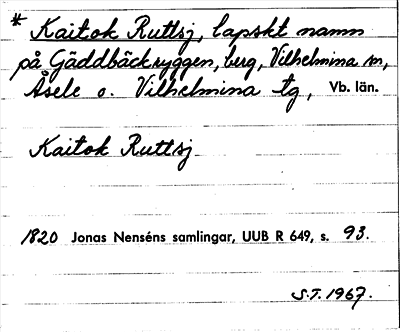 * Kaitok Ruttsj, lapskt namn
på Gäddbäcksryggen, berg, Vilhelmina sn,
Åsele o. Vilhelmina tg, Vb. län.
Kaitok Ruttsj
1820 Jonas Nenséns samlingar, UUB R 649, s. 93.
S.T. 1967.